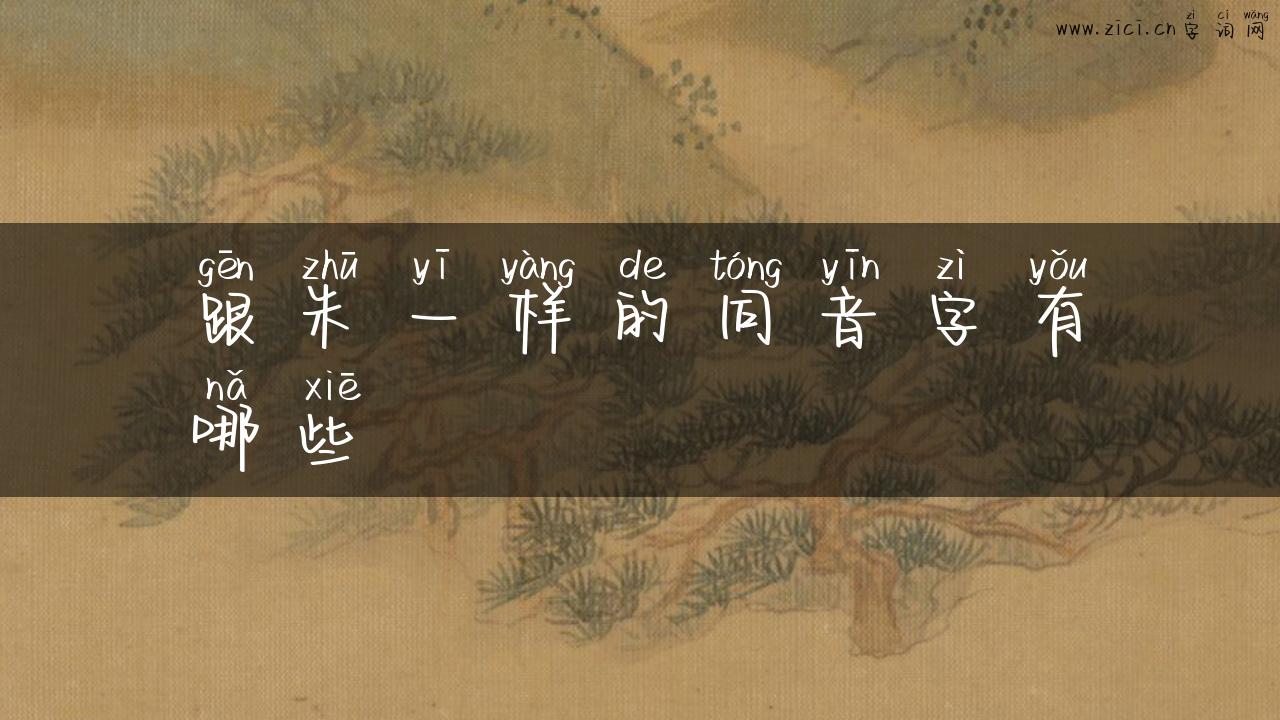 zì cí wǎng
www.zici.cn 字词网
gēn zhū yī yàng de tóng yīn zì yǒu
跟朱一样的同音字有
nǎ xiē
哪些